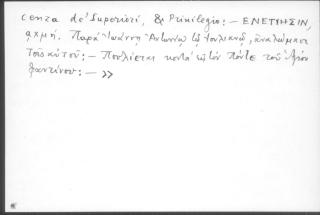 cenza de' Superiori, & Privilegio: — ΕΝΕΤΙΗΣΙΝ,
αχμή. Παρὰ Ἰωάννῃ Ἀντωνίῳ τῷ Ἰουλιανῷ, ἀναλώμασι
τοῖς αὐτοῦ: — Πουλιέται κοντὰ εἰς τὸν πόντε τοῦ Ἁγίου
Φαντίνου: — >>